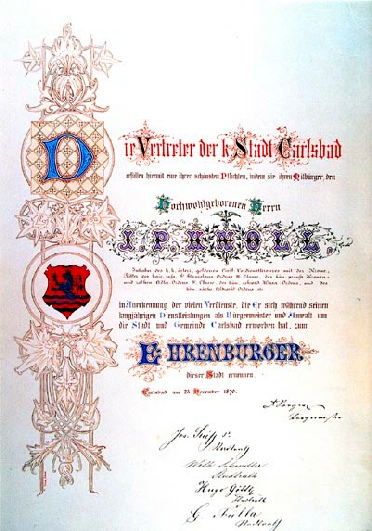 Die Vertreter der k. Stadt Carlsbad
erfüllen hiermit eine ihrer schönsten Pflichten, indem sie ihren Mitbürger, den
Hochwohlgebornen Herrn
J. P. KNOLL,
Inhaber des k.k. österr. goldenen Civil-Verdienstkreuzes mit der Krone,
Ritter des kais. russ. St. Stanislaus Ordens
in Anerkennung der vielen Verdienste, die Er sich während seinen
langjährigen Dienstleistungen als Bürgermeister und Anwalt um
die Stadt und Gemeinde Carlsbad erworben hat, zum
EHRENBÜRGER
dieser Stadt ernennen.
Carlsbad am 23. November 1876.
Jos.
Stadtrath
Stadtrath
Hugo Göttl
Stadtrath
G.
Stadtrath